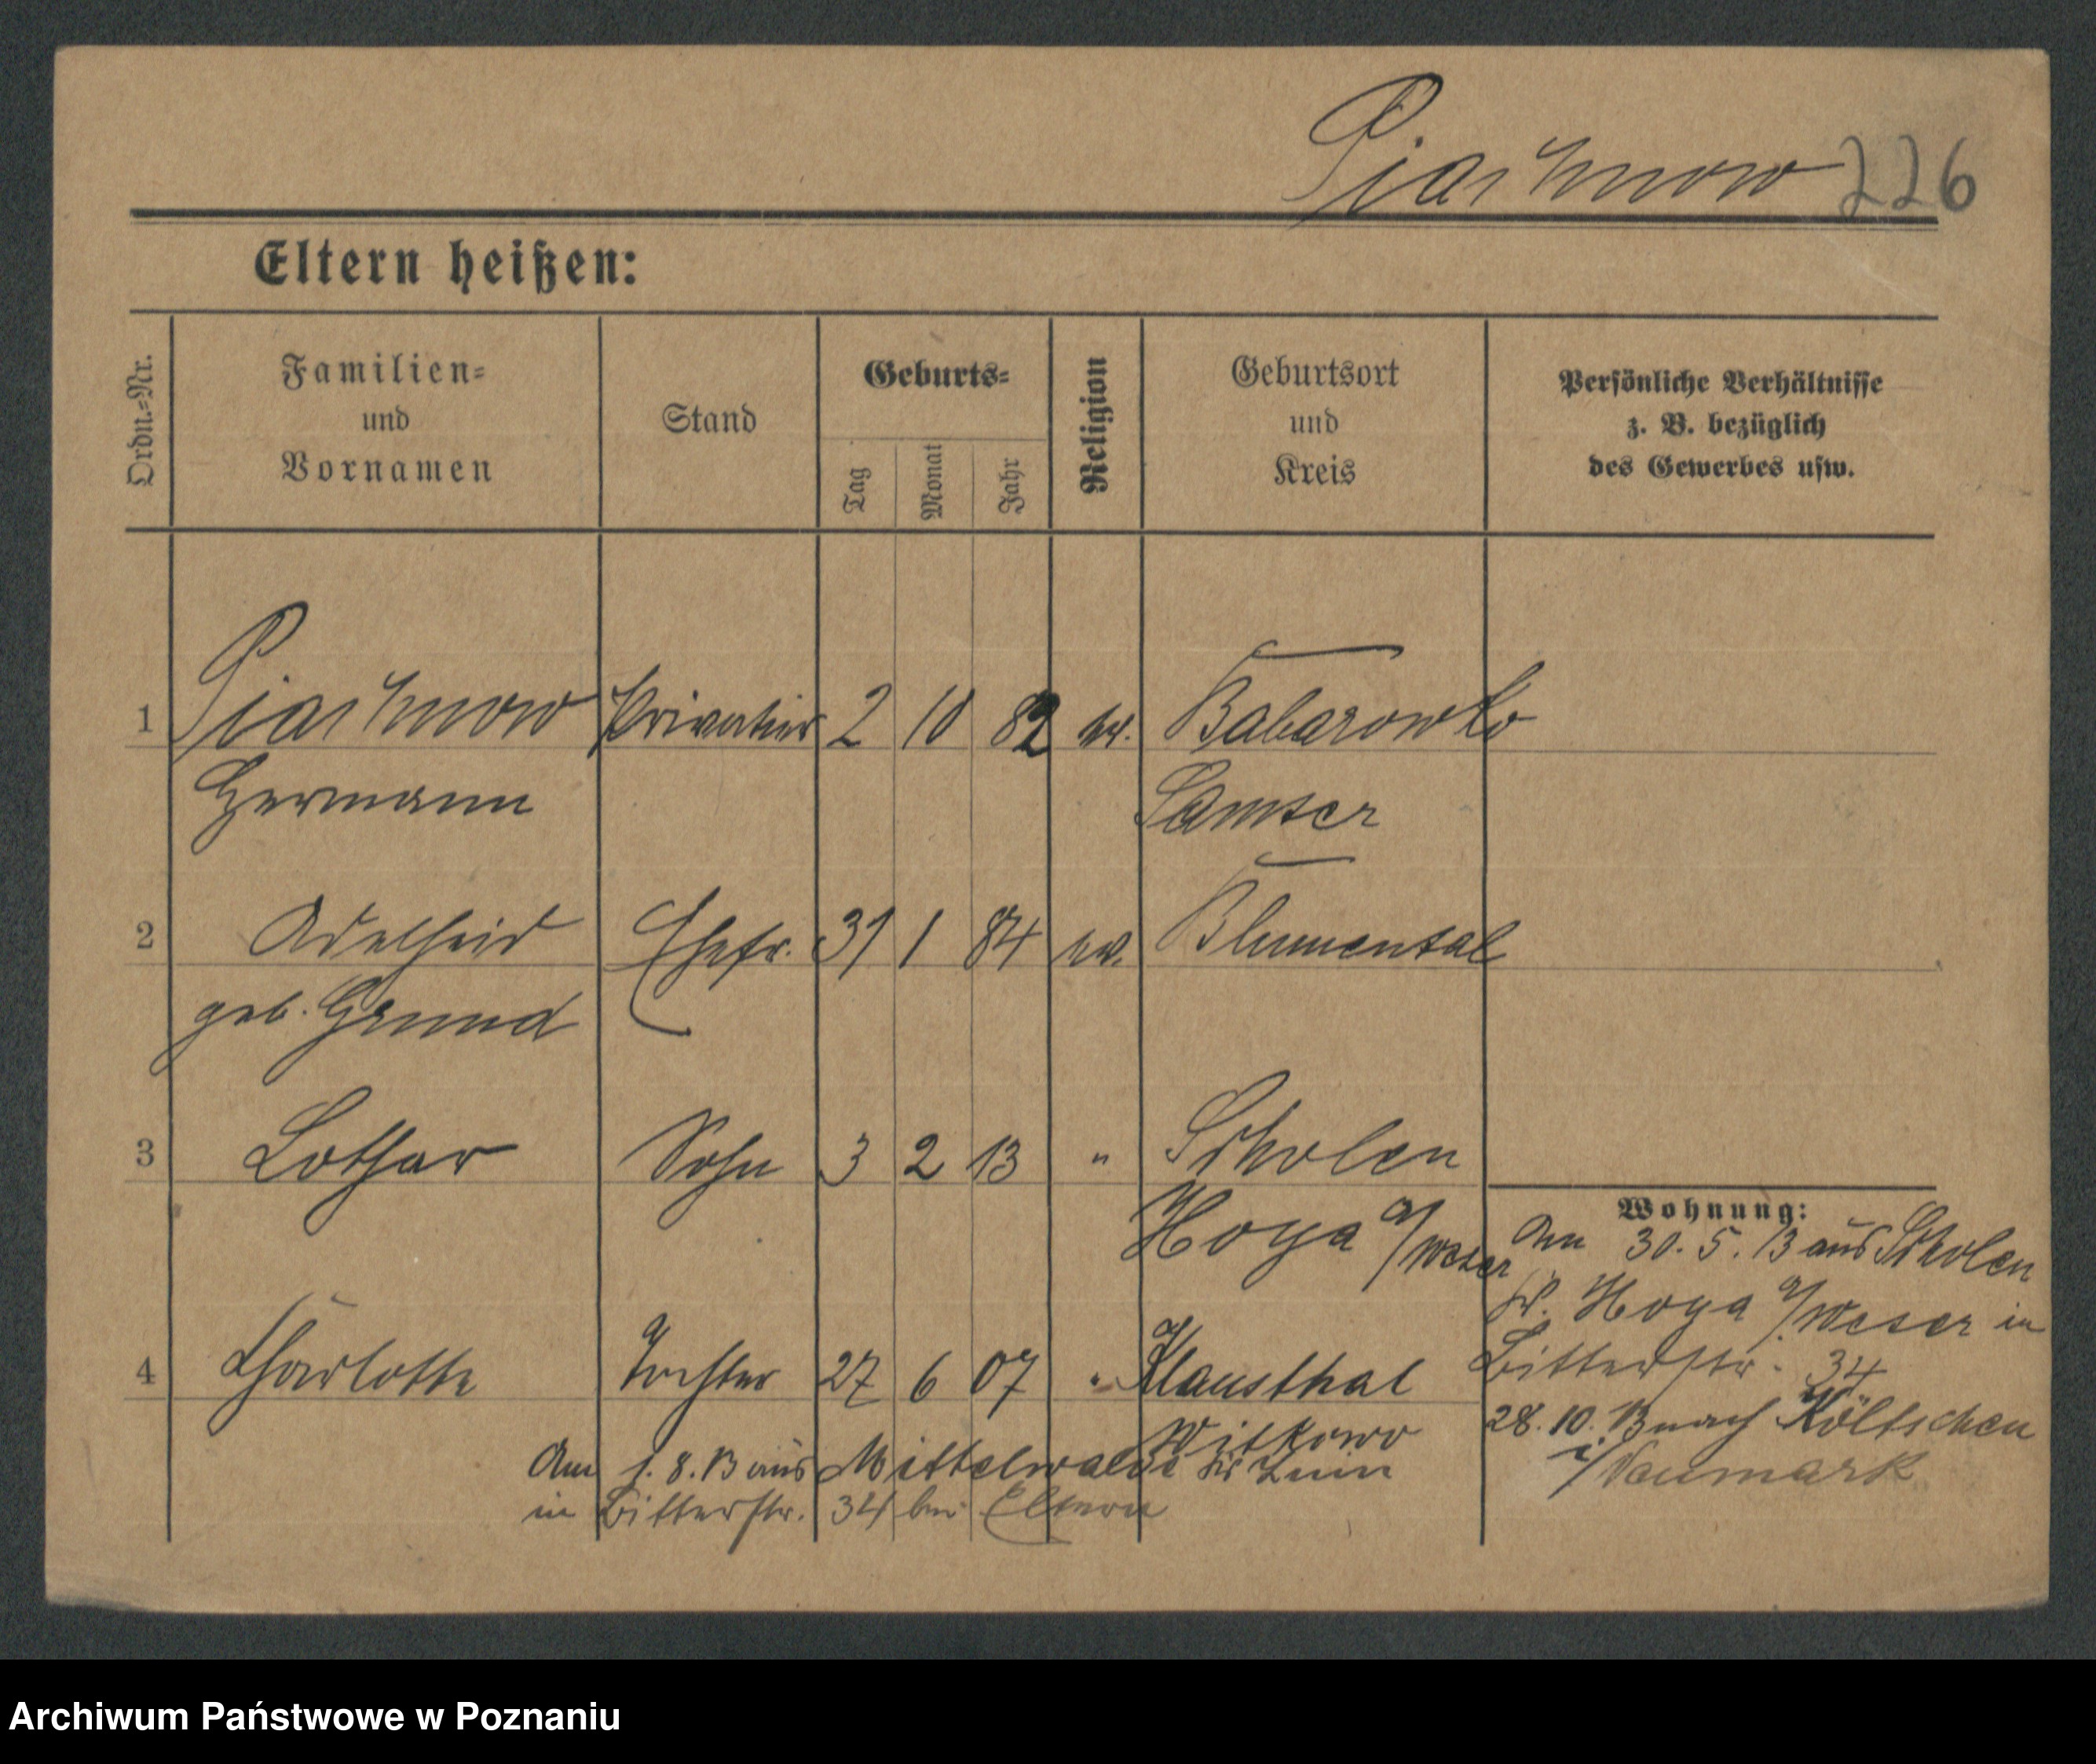 226
Eltern heißen:
Ordn.=Nr.
Familien=
und
Vornamen
Stand
Geburts=
Tag
Monat
Jahr
Religion
Geburtsort
und
Kreis
Persönliche Verhältnisse
z. B. bezüglich
des Gewerbes usw.
1 Privatier 2 10 82 ev. Babarowko
Hermann Samter
2 Adelheid Ehefr. 31 1 84 ev. Blumental
geb. Grund
3 Lothar Sohn 3 2 13 " Scholen
Hoya a/Weser
4 Charlotte Tochter 27 6 07 " Klausthal
Witkowo
Am 1. 8. 13 aus Mittelwalde Kr Znin
in Bitterstr. 34 bei Eltern
Wohnung:
Am 30. 5. 13 aus Scholen
Kr. Hoya a/Weser in
Bitterstr. 34
28. 10. 13 nach Költschen
i/Neumark
Archiwum Państwowe w Poznaniu